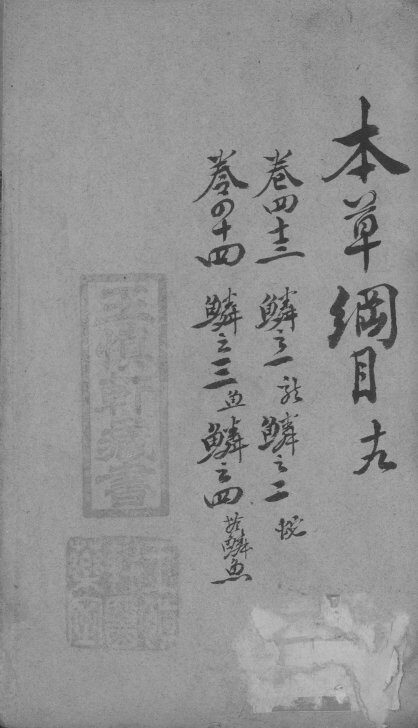 本草綱目 九
卷四十三 鱗之一 龍 鱗之二 蛇
卷四十四 鱗之三 魚 鱗之四 無鱗魚
王慎軒藏書